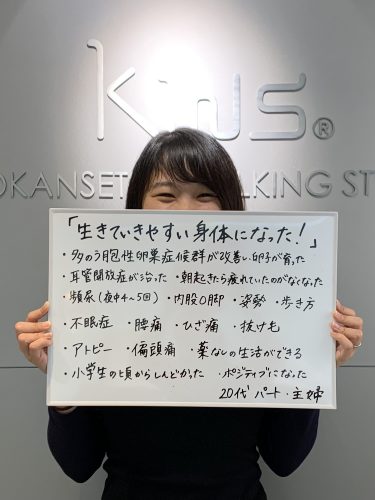 KWS.®
OKANSET LKING ST
「生きていきやすい身体になった!」
・多のう胞性卵巣症候群が改善い卵子が育った
・耳管開放症が治った ・朝起きたら疲れていたのがなくなった
・頻尿(夜中4~5回) ・内股O脚 ・姿勢 ・歩き方
・不眠症 ・腰痛 ・ひざ痛 ・抜け毛
・アトピー ・偏頭痛 ・薬なしの生活ができる
・小学生の頃からしんどかった ・ポジティブになった
20代 パート・主婦